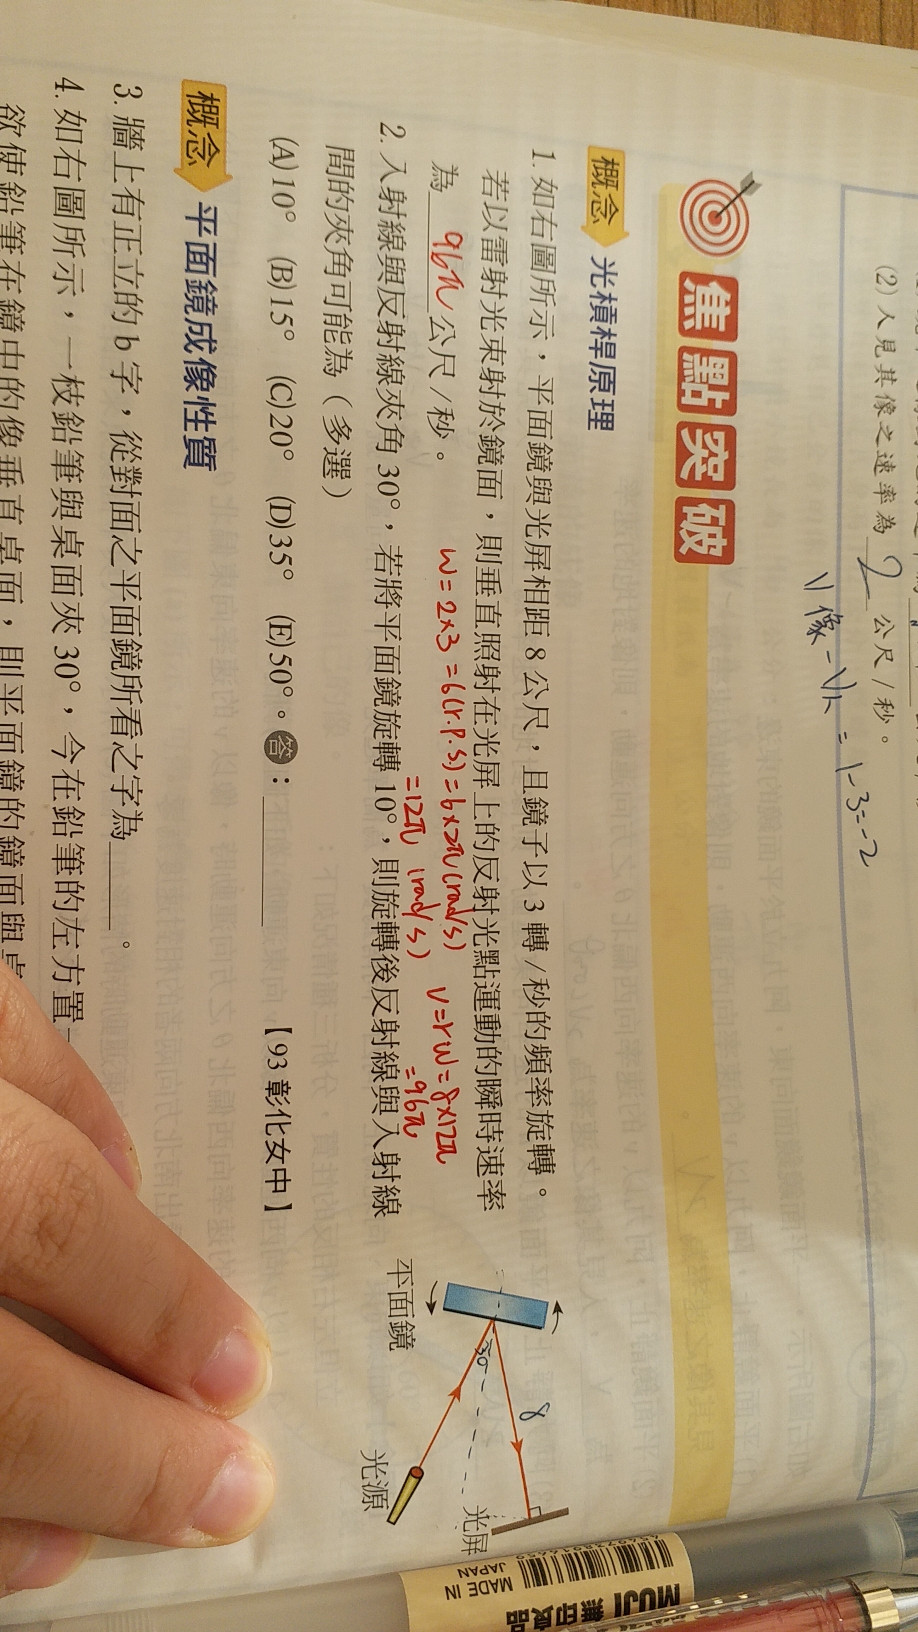 (2)人見其像之速率為 2 公尺/秒。
V像-V人 = 1-3=-2
焦點突破
概念 光槓桿原理
1. 如右圖所示，平面鏡與光屏相距 8 公尺，且鏡子以 3 轉/秒的頻率旋轉。
若以雷射光束射於鏡面，則垂直照射在光屏上的反射光點運動的瞬時速率
為 96π 公尺/秒。
w=2×3=6(r.p.s.)=6×2π(rad/s)
=12π (rad/s)
v=rw=8×12π
=96π
2. 入射線與反射線夾角 30°，若將平面鏡旋轉 10°，則旋轉後反射線與入射線
間的夾角可能為（多選）
(A)10° (B)15° (C)20° (D)35° (E)50°。答：
【93 彰化女中】
平面鏡
30
8
光源
光屏
概念 平面鏡成像性質
3. 牆上有正立的 b 字，從對面之平面鏡所看之字為 。
4. 如右圖所示，一枝鉛筆與桌面夾 30°，今在鉛筆的左方置一
欲使鉛筆在鏡中的像垂直桌面，則平面鏡的鏡面與桌
MADE IN
JAPAN
MUJI 無印良品